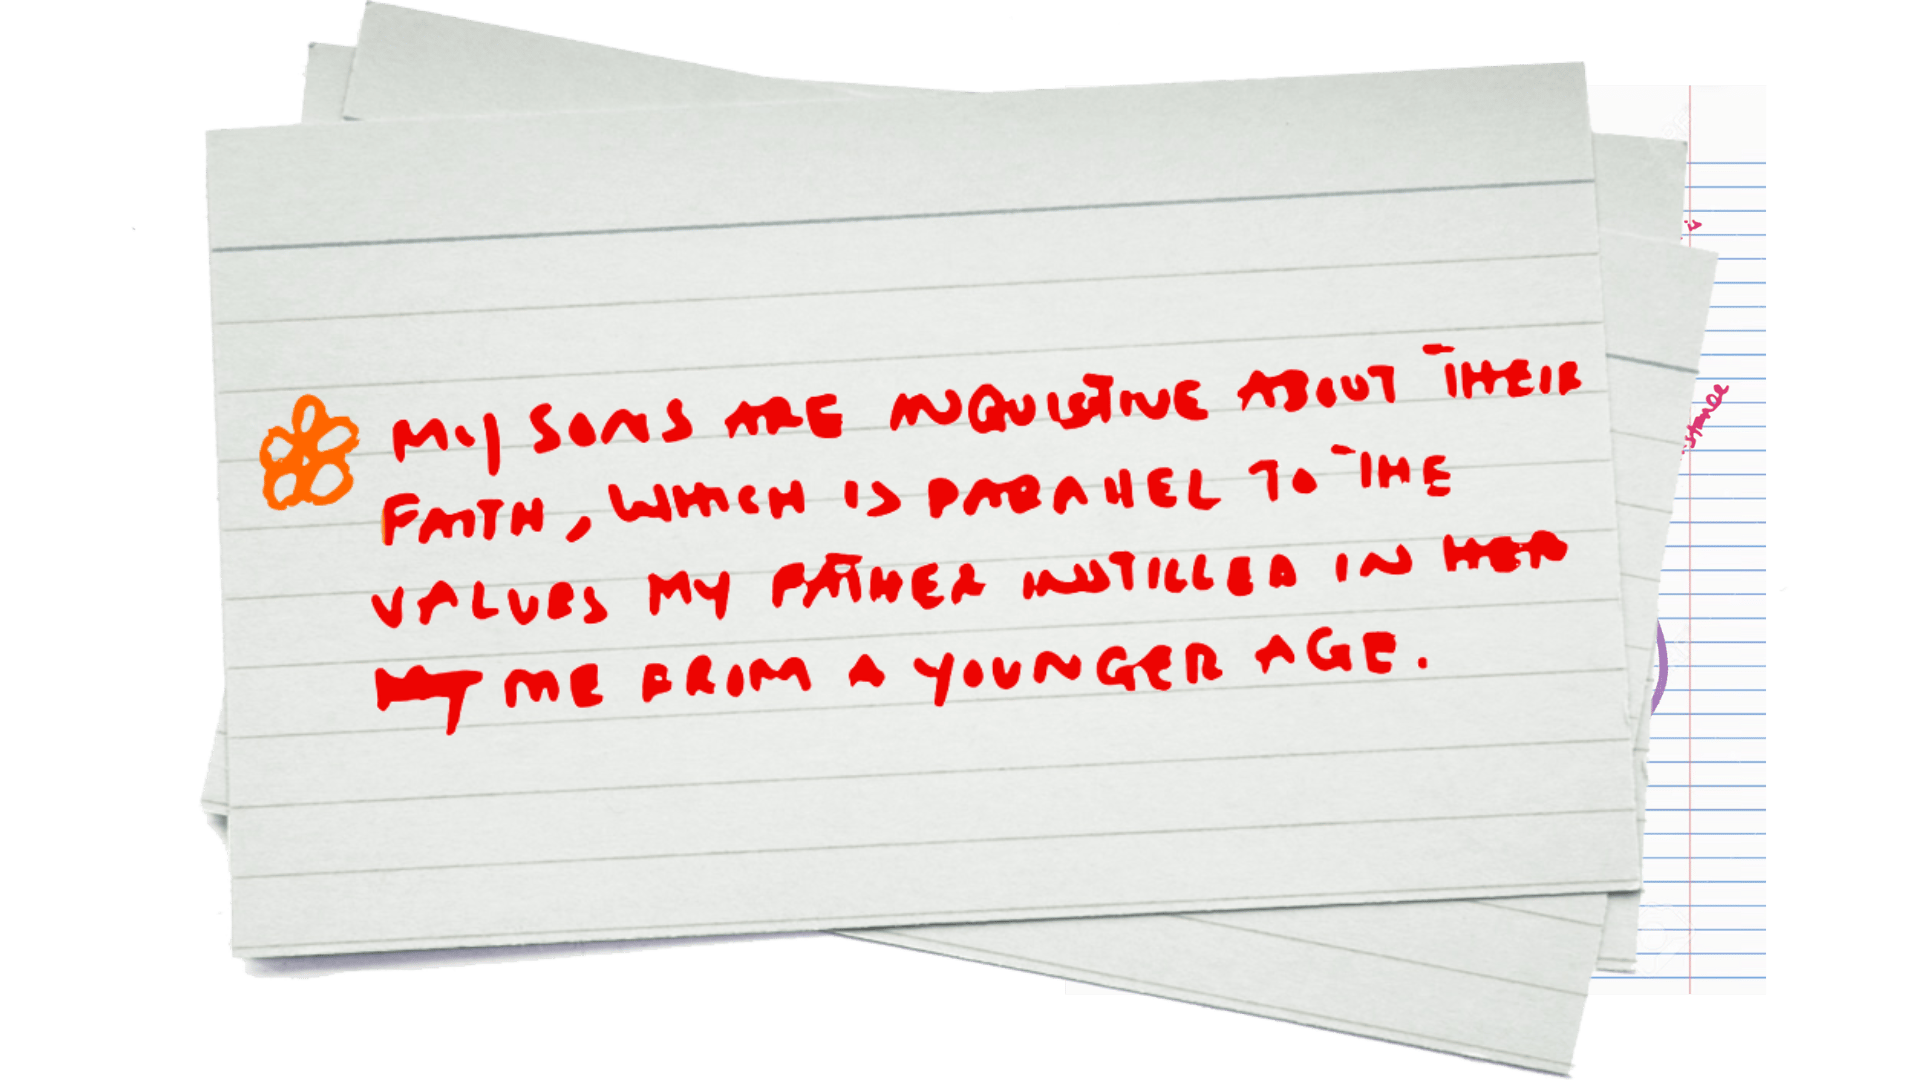 MY SONS ARE INQUISTIVE ABOUT THEIR
FAITH, WHICH IS PARALLEL TO THE
VALUES MY FATHER INSTILLED IN HER
MY ME FROM A YOUNGER AGE.
is
stance